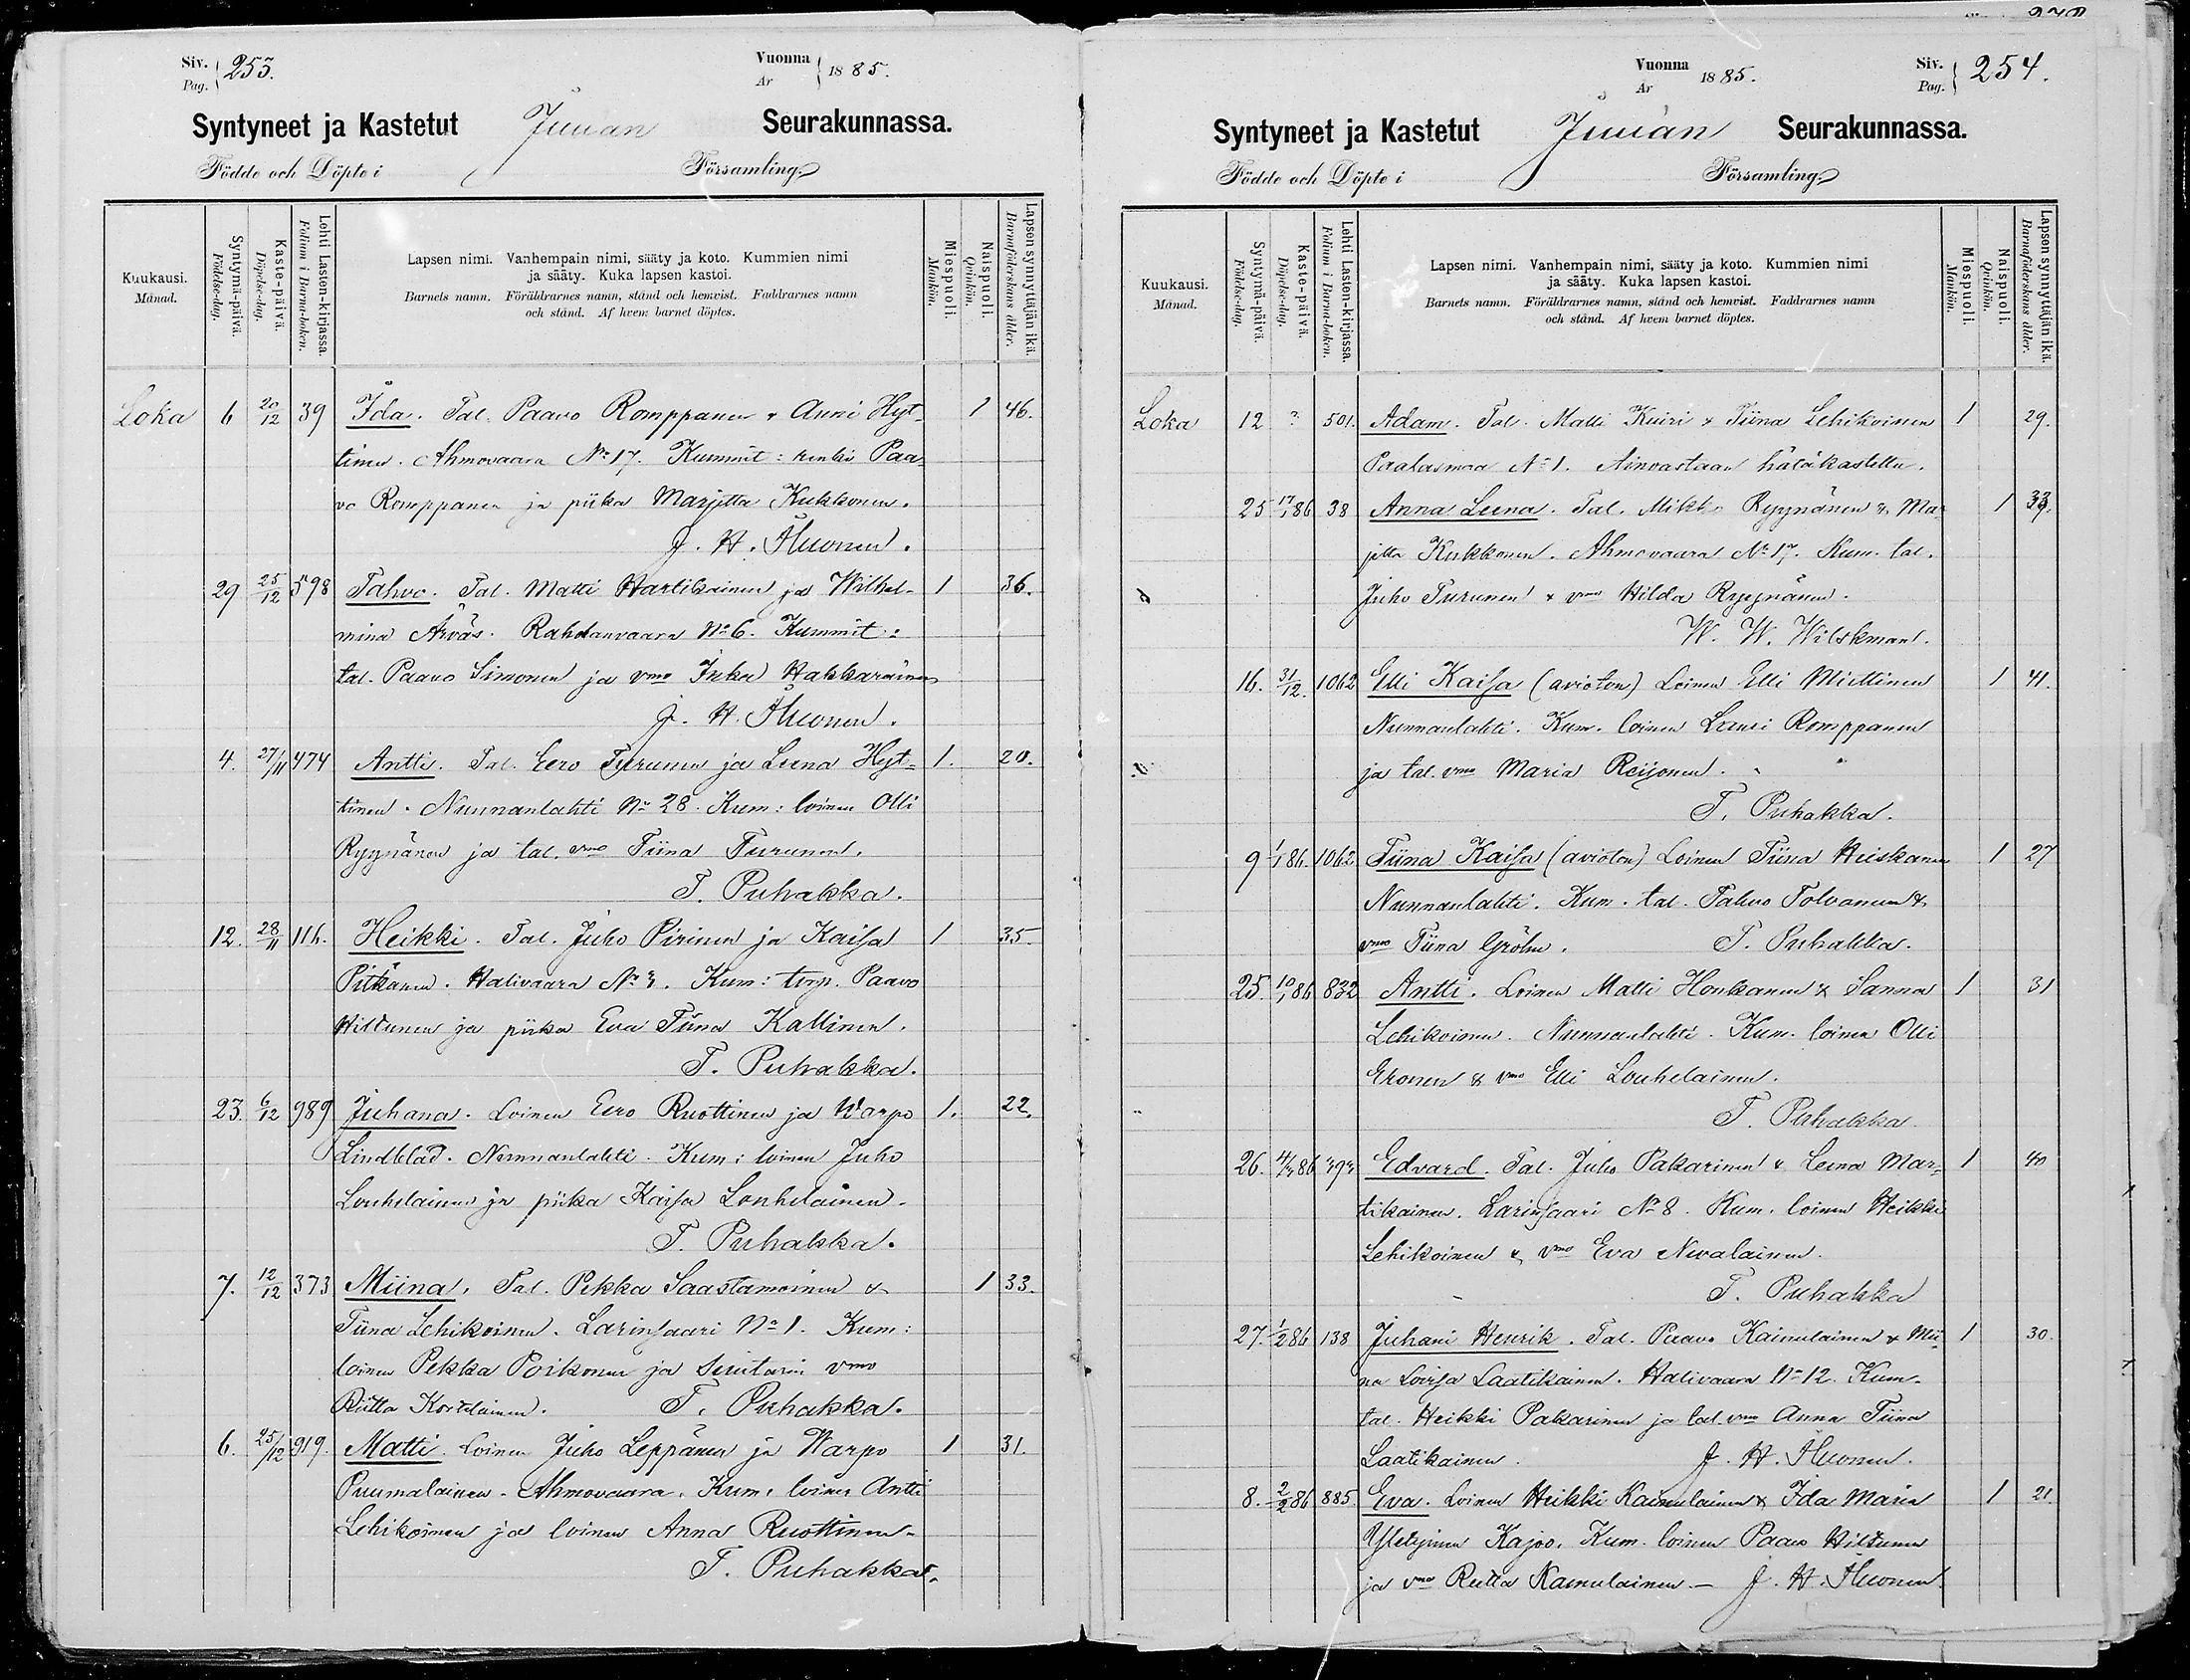 Siv. Pag. 253.
Vuonna År 1885.
Syntyneet ja Kastetut Juuan Seurakunnassa.
Födde och Döpte i Församling.
Kuukausi. Månad.
Syntymä-päivä. Födelse-dag.
Kaste-päivä. Döpelse-dag.
Lehti Lasten-kirjassa. Folium i Barna-boken.
Lapsen nimi. Vanhempain nimi, sääty ja koto. Kummien nimi
ja sääty. Kuka lapsen kastoi.
Barnets namn. Föräldrarnes namn, stånd och hemvist. Faddrarnes namn
och stånd. Af hvem barnet döptes.
Miespuoli. Mankön.
Naispuoli. Qvinkön.
Lapsen synnyttäjän ikä. Barnaföderskans ålder.
Loka 6 20/12 39 Ida. Tal. Paavo Romppanen & Anni Hyt- 1 46.
tinen. Ahmovaara No 17. Kummit: renki Paa-
vo Romppanen ja piika Marjetta Kukkonen.
J. H. Ihuonen.
29 25/12 598 Tahvo. Tal. Matti Hartikainen ja Wilhel- 1 36.
mina Ärväs. Rahdanvaara No 6. Kummit:
tal. Paavo Simonen ja vmo Inka Hakkarainen
J. H. Ihuonen.
4. 27/11 474 Antti. Tal. Eero Turunen ja Leena Hyt- 1. 20.
tinen. Nunnanlahti No 28. Kum: loinen Olli
Ryynänen ja tal. vmo Tiina Turunen.
T. Puhakka.
12. 28/11 116. Heikki. Tal. Juho Pirinen ja Kaisa 1 35.
Pitkänen. Halivaara No 3. Kum: torp. Paavo
Hiltunen ja piika Eva Tiina Kallinen.
T. Puhakka.
23. 6/12 989 Juhana. Loinen Eero Ruottinen ja Warpo 1. 22.
Lindblad. Nunnanlahti. Kum: loinen Juho
Louhelainen ja piika Kaisa Louhelainen.
T. Puhakka.
7. 12/12 373 Miina. Tal. Pekka Saastamoinen & 1 33.
Tiina Lehikoinen. Larinsaari No 1. Kum:
loinen Pekka Poikonen ja suutarin vmo
Riitta Kortelainen. T. Puhakka.
6. 25/12 919. Matti. Loinen Juho Leppänen ja Warpo 1 31.
Puumalainen. Ahmovaara. Kum. loinen Antti
Lehikoinen ja loinen Anna Ruottinen.
T. Puhakka.
Vuonna År 1885.
Siv. Pag. 254.
Syntyneet ja Kastetut Juuan Seurakunnassa.
Födde och Döpte i Församling.
Kuukausi. Månad.
Syntymä-päivä. Födelse-dag.
Kaste-päivä. Döpelse-dag.
Lehti Lasten-kirjassa. Folium i Barna-boken.
Lapsen nimi. Vanhempain nimi, sääty ja koto. Kummien nimi
ja sääty. Kuka lapsen kastoi.
Barnets namn. Föräldrarnes namn, stånd och hemvist. Faddrarnes namn
och stånd. Af hvem barnet döptes.
Miespuoli. Mankön.
Naispuoli. Qvinkön.
Lapsen synnyttäjän ikä. Barnaföderskans ålder.
Loka 12 ? 501. Adam. Tal. Matti Kuiri & Tiina Lehikoinen 1 29.
Paalasmaa No 1. Ainoastaan hätäkastettu.
25 17/1 86 38 Anna Leena. Tal. Mikko Ryynänen & Mar- 1
jetta Kukkonen. Ahmovaara No 17. Kum. tal.
Juho Turunen & vmo Hilda Ryynänen.
W. W. Wilskman.
16. 31/12. 1062 Elli Kaisa (avioton) Loinen Elli Miettinen 1 41.
Nunnanlahti. Kum. loinen Lauri Romppanen
ja tal. vmo Maria Reijonen.
T. Puhakka.
9 1/1 86. 1062 Tiina Kaisa (avioton) Loinen Tiina Heiskanen 1 27
Nunnanlahti. Kum. tal. Tahvo Tolvanen &
vmo Tiina Gröhn. T. Puhakka.
25. 10/1 86 832 Antti. Loinen Matti Honkanen & Sanna 1 31
Lehikoinen. Nunnanlahti. Kum. loinen Olli
Eronen & vmo Elli Louhelainen.
T. Puhakka
26. 86 393 Edvard. Tal. Juho Pakarinen & Leena Mar- 1 40
tikainen. Larinsaari No 8. Kum. loinen Heikki
Lehikoinen & vmo Eva Nevalainen.
T. Puhakka
27. 1/2 86 138 Juhani Henrik. Tal. Paavo Kainulainen & Mii- 1 30.
na Loviisa Laatikainen. Halivaara No 12. Kum.
tal. Heikki Pakarinen ja tal. vmo Anna Tiina
Laatikainen. J. H. Ihuonen.
8. 2/2 86 885 Eva. Loinen Heikki Kainulainen & Ida Maria 1 21.
Kajoo. Kum. loinen Paavo Hiltunen
ja vmo Reetta Kainulainen. — J. H. Ihuonen